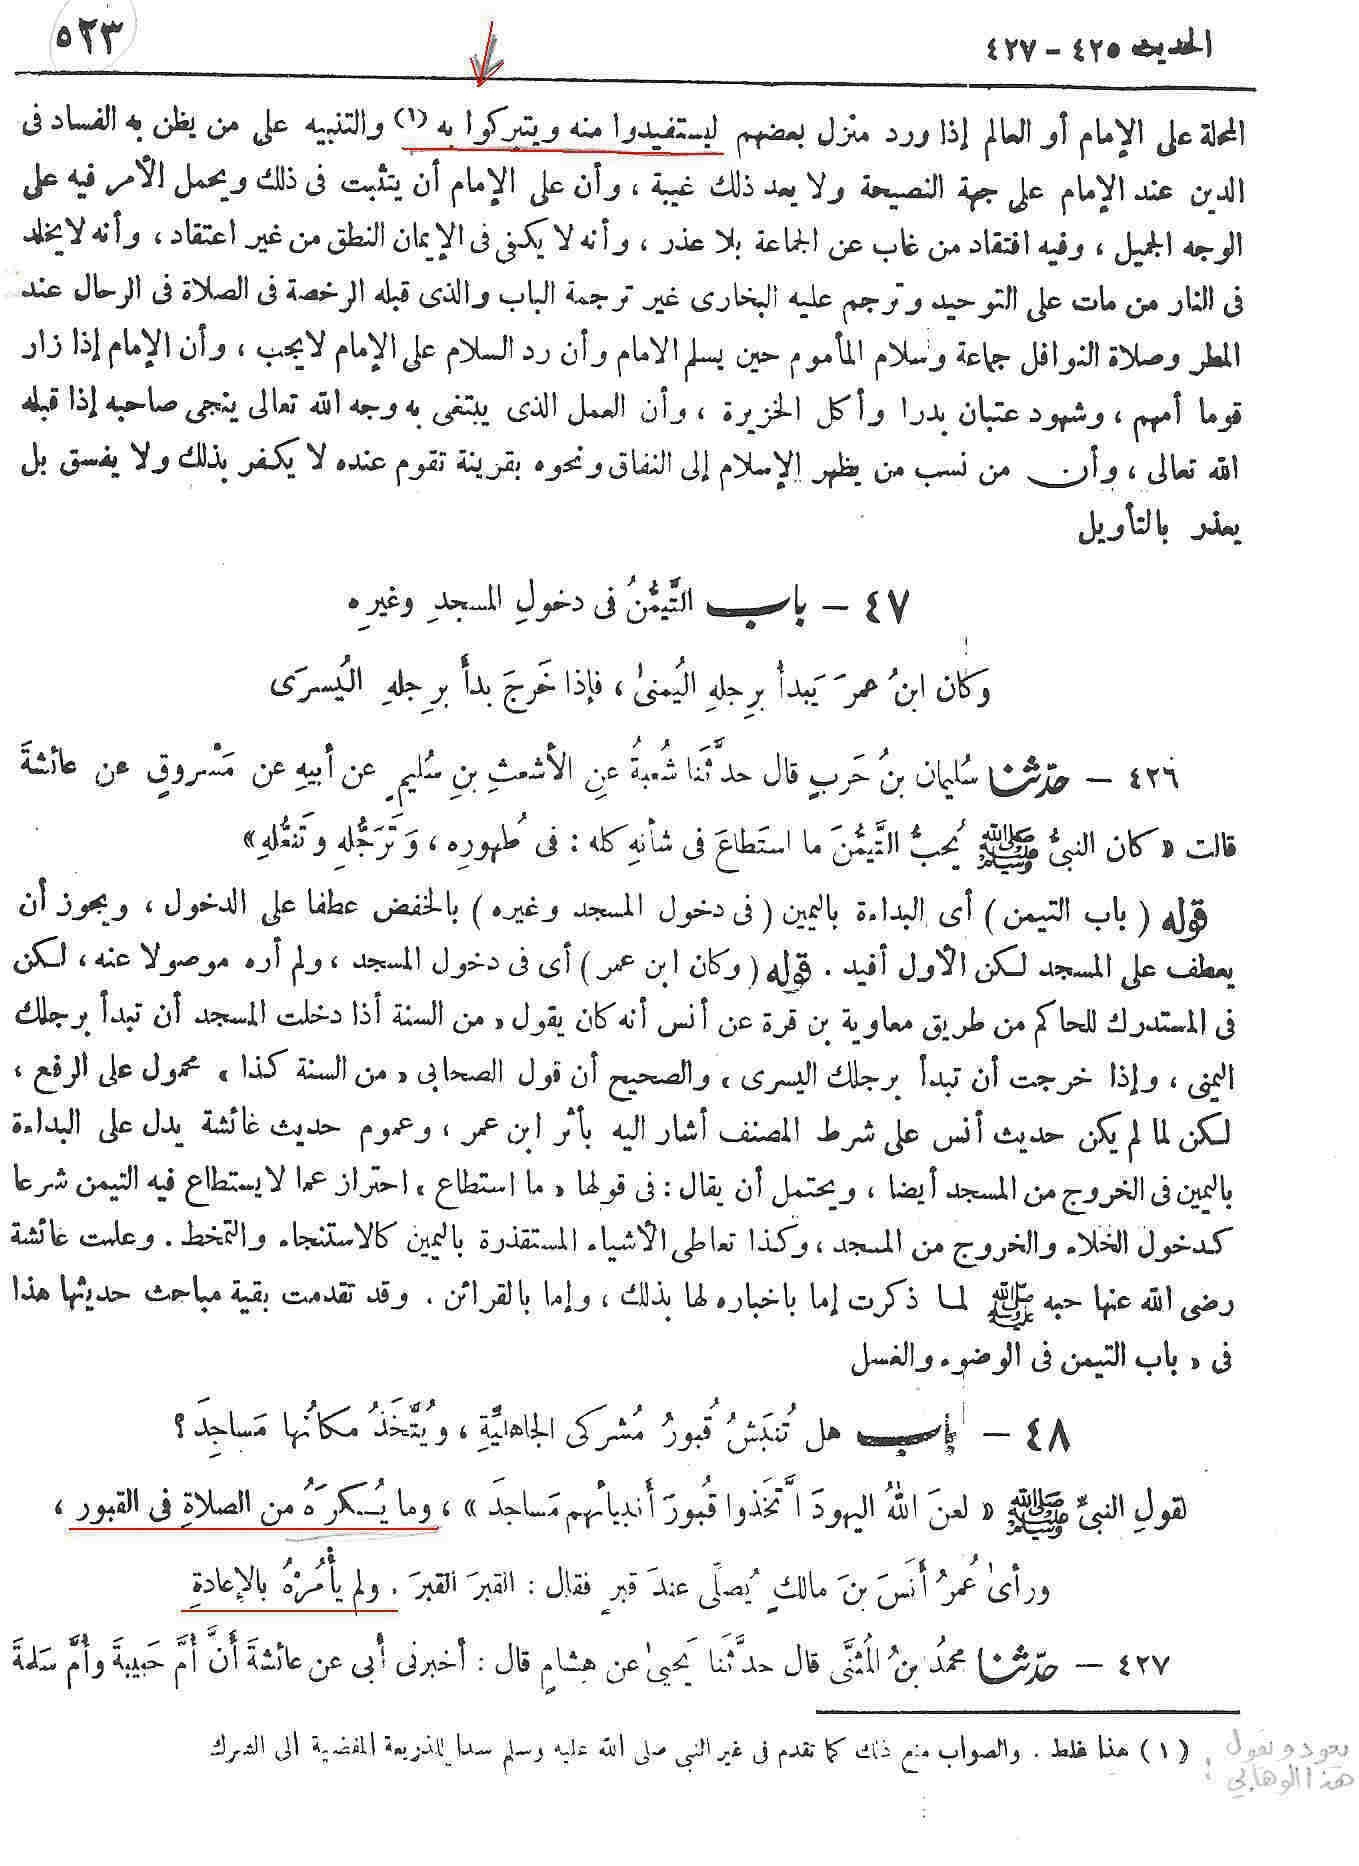 الحديث ٤٢٥ - ٤٢٧
٥٢٣
المحلة على الإمام أو العالم إذا ورد منزل بعضهم ليستفيدوا منه ويتبركوا به (١) والتنبيه على من يظن به الفساد فى
الدين عند الإمام على جهة النصيحة ولا يعد ذلك غيبة ، وأن على الإمام أن يتثبت فى ذلك ويحمل الأمر فيه على
الوجه الجميل ، وفيه افتقاد من غاب عن الجماعة بلا عذر ، وأنه لا يكفى فى الإيمان النطق من غير اعتقاد ، وأنه لا يخلد
فى النار من مات على التوحيد وترجم عليه البخارى غير ترجمة الباب والذى قبله الرخصة فى الصلاة فى الرحال عند
المطر وصلاة النوافل جماعة وسلام المأموم حين يسلم الامام وأن رد السلام على الإمام لا يجب ، وأن الإمام إذا زار
قوما أمهم ، وشهود عتبان بدرا وأكل الخزيرة ، وأن العمل الذى يبتغى به وجه الله تعالى ينجى صاحبه إذا قبله
الله تعالى ، وأن من نسب من يظهر الإسلام إلى النفاق ونحوه بقرينة تقوم عنده لا يكفر بذلك ولا يفسق بل
يعذر بالتأويل
٤٧ - باب التَّيمُّنُ فى دخولِ المسجدِ وغيرِه
وكان ابنُ عمرَ يَبدأُ برِجلهِ اليُمنىٰ ، فإذا خَرجَ بدأَ برجلهِ اليُسرَى
٤٢٦ - حدّثنا سُليمان بنُ حَربٍ قال حدَّثَنا شُعبةُ عنِ الأشعثِ بنِ سُليمٍ عن أبيهِ عن مَسْروقٍ عن عائشةَ
قالت « كان النبىُّ ﷺ يُحبُّ التَّيمُّنَ ما استَطاعَ فى شأنهِ كله : فى طُهورِه ، وَتَرَجُّلِهِ وتَنعُّلهِ»
قوله ( باب التيمن ) أى البداءة باليمين ( فى دخول المسجد وغيره ) بالخفض عطفا على الدخول ، ويجوز أن
يعطف على المسجد لكن الأول أفيد . قوله ( وكان ابن عمر ) أى فى دخول المسجد ، ولم أره موصولا عنه ، لكن
فى المستدرك للحاكم من طريق معاوية بن قرة عن أنس أنه كان يقول « من السنة أذا دخلت المسجد أن تبدأ برجلك
اليمنى ، وإذا خرجت أن تبدأ برجلك اليسرى » والصحيح أن قول الصحابى « من السنة كذا » محمول على الرفع ،
لكن لما لم يكن حديث أنس على شرط المصنف أشار اليه بأثر ابن عمر ، وعموم حديث عائشة يدل على البداءة
باليمين فى الخروج من المسجد أيضا ، ويحتمل أن يقال : فى قولها « ما استطاع » احتراز عما لا يستطاع فيه التيمن شرعا
كدخول الخلاء والخروج من المسجد ، وكذا تعاطى الأشياء المستقذرة باليمين كالاستنجاء والتمخط . وعلمت عائشة
رضى الله عنها حبه ﷺ لما ذكرت إما باخباره لها بذلك ، وإما بالقرائن . وقد تقدمت بقية مباحث حديثها هذا
فى « باب التيمن فى الوضوء والغسل
٤٨ - باب هل تُنبَشُ قُبورُ مُشركى الجاهليَّةِ ، ويُتَّخَذُ مكانُها مَساجِدَ ؟
لقولِ النبىِّ ﷺ « لعنَ اللهُ اليهودَ اتَّخَذوا قُبورَ أنبيائهم مَساجدَ » ، وما يُكرَهُ من الصلاةِ فى القبور ،
ورأىٰ عُمرُ أَنَسَ بنَ مالكٍ يُصلّى عندَ قبرٍ فقال : القبرَ القبرَ . ولم يأْمُرْهُ بالإعادةِ
٤٢٧ - حدّثنا محمدُ بنُ المُثنَّى قال حدَّثَنا يَحيىٰ عن هِشامٍ قال : أخبرنى أبى عن عائشةَ أَنَّ أُمَّ حَبيبةَ وأُمَّ سَلمةَ
(١) هذا غلط . والصواب منع ذلك كما تقدم فى غير النبى صلى الله عليه وسلم سدا للذريعة المفضية الى الشرك
يعود ونقول
هذا الوهابي :